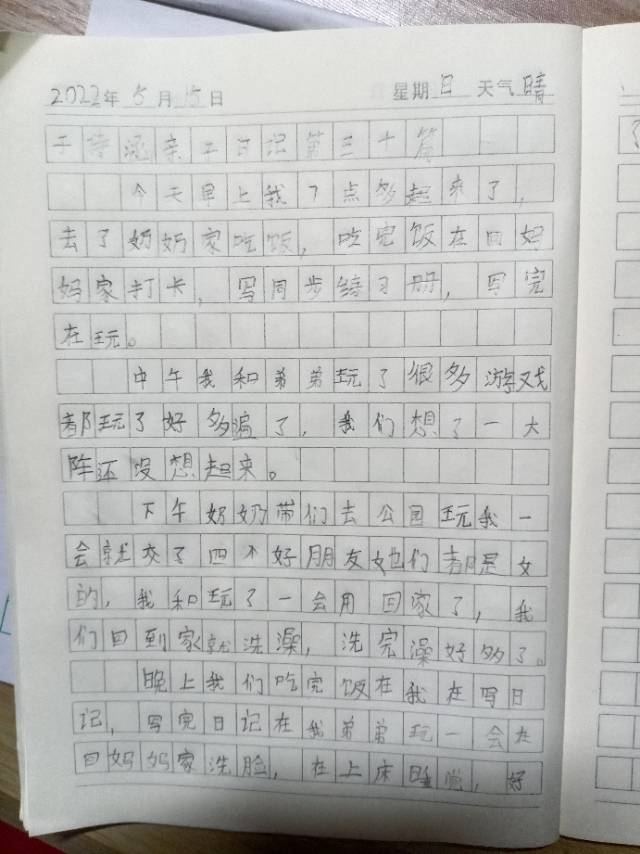 2022年5月15日 星期日 天气晴
亲子日记第三十篇
今天早上我7点多起来了，
去了奶奶家吃饭，吃完饭在回妈
妈家打卡，写同步练习册，写完
在玩。
中午我和弟弟玩了很多游戏
都玩了好多遍了，我们想了一大
阵还没想起来。
下午奶奶带们去公园玩我一
会就交了四个好朋友她们都是女
的，我和玩了一会用回家了，我
们回到家就洗澡，洗完澡好多了。
晚上我们吃完饭在我在写日
记，写完日记在我弟弟玩一会在
回妈妈家洗脸，在上床睡觉，好